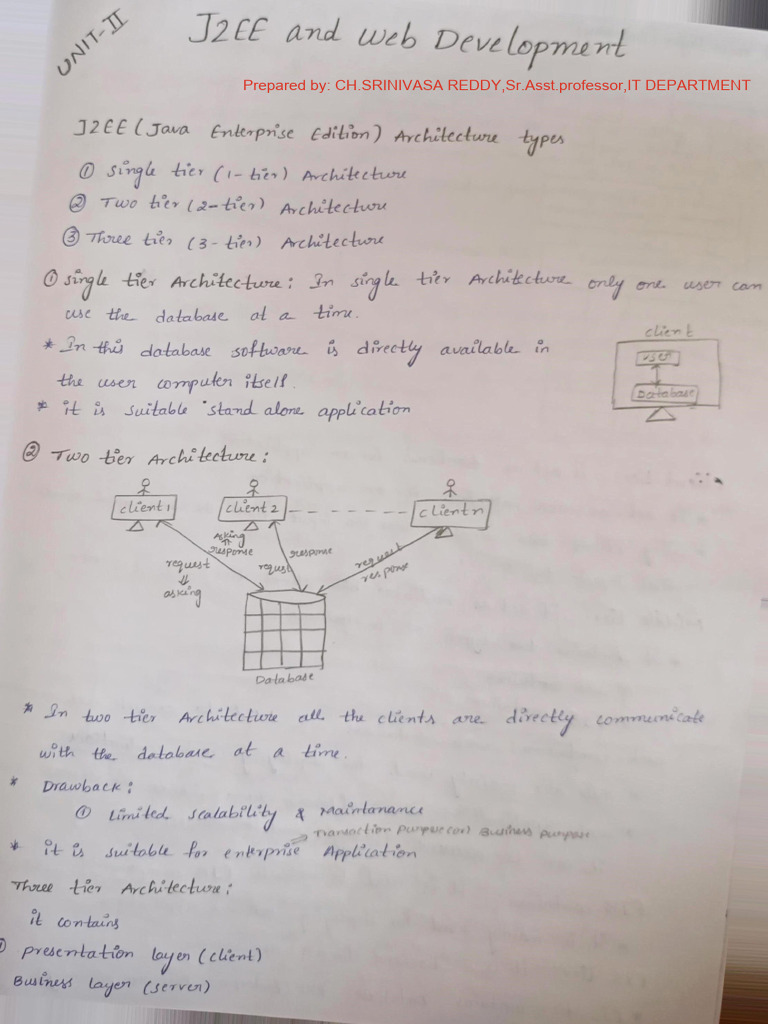 UNIT-II
J2EE and Web Development
Prepared by: CH.SRINIVASA REDDY,Sr.Asst.professor,IT DEPARTMENT
J2EE (Java Enterprise Edition) Architecture types
① Single tier (1-tier) Architecture
② Two tier (2-tier) Architecture
③ Three tier (3-tier) Architecture
① Single tier Architecture: In single tier Architecture only one user can
use the database at a time.
* In this database software is directly available in
the user computer itself.
* it is suitable stand alone application
client
user
Database
② Two tier Architecture:
client1
client2
clientn
Asking
response
request
asking
response
requst
request
response
Database
* In two tier Architecture all the clients are directly communicate
with the database at a time.
* Drawback:
① Limited scalability & Maintanance
Transaction purpose (or) Business purpose
* it is suitable for enterprise Application
Three tier Architecture:
it contains
presentation layer (client)
Business layer (server)